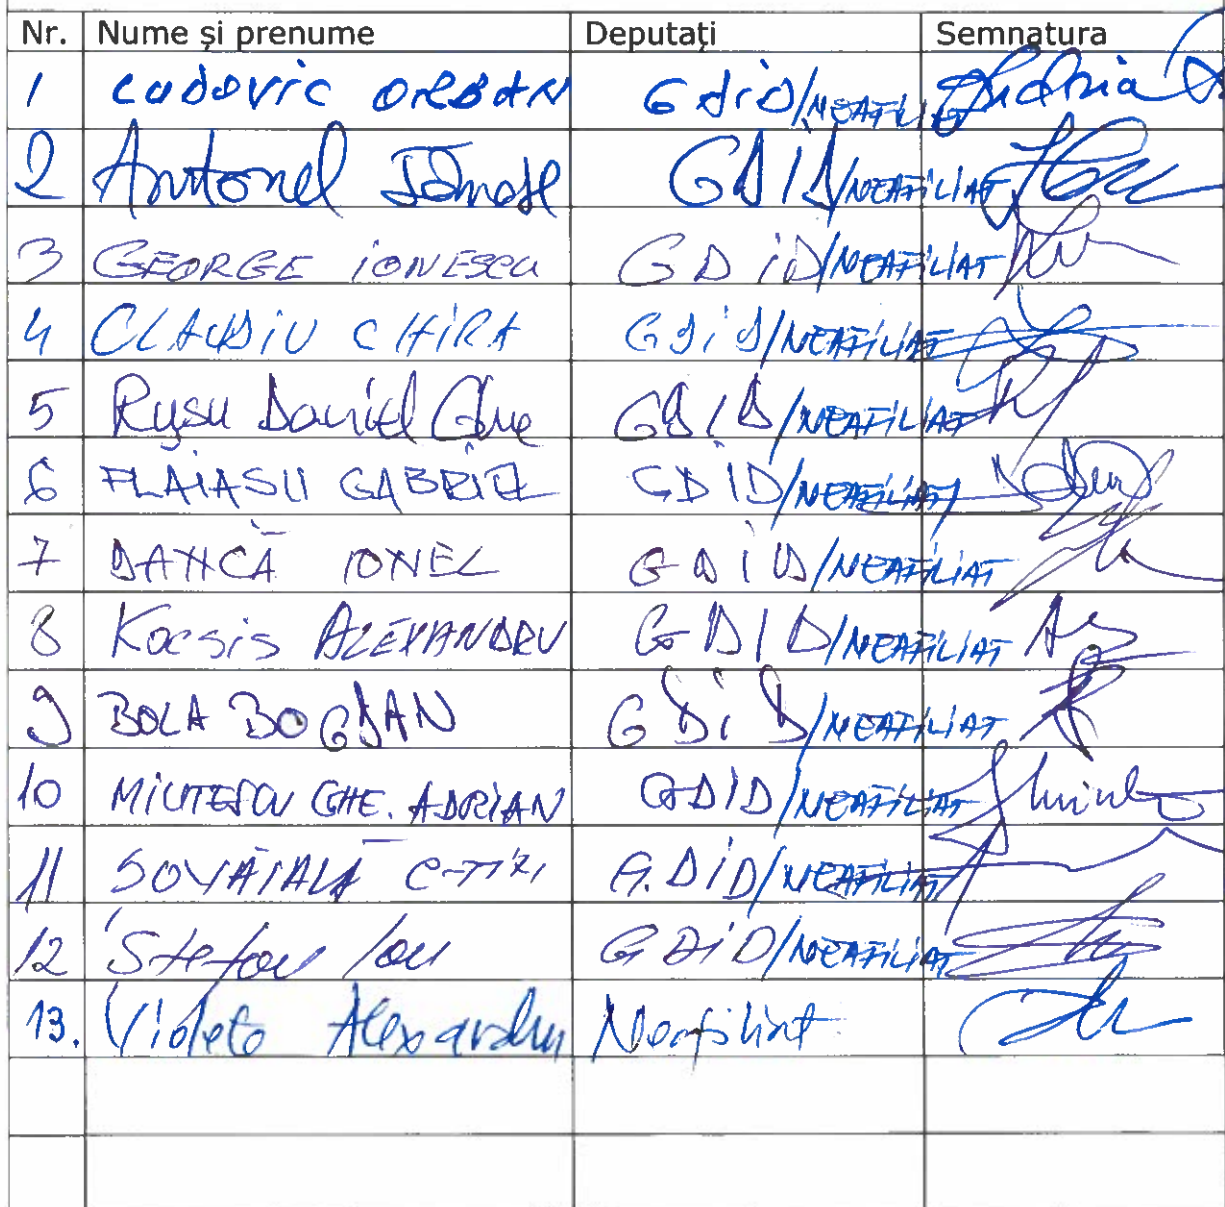 Nr. Nume și prenume Deputați Semnatura
1 LUDOVIC ORBAN GDID/NEAFILIAT
2 Antonel Tănase GDID/NEAFILIAT
3 GEORGE IONESCU GDID/NEAFILIAT
4 CLAUDIU CHIRA GDID/NEAFILIAT
5 Rușu Daniel Ghe GDID/NEAFILIAT
6 FLĂIAȘU GABRIEL GDID/NEAFILIAT
7 DANCĂ IONEL GDID/NEAFILIAT
8 Kocsis ALEXANDRU GDID/NEAFILIAT
9 BOLA BOGDAN GDID/NEAFILIAT
10 MIUȚESCU GHE. ADRIAN GDID/NEAFILIAT
11 ȘOVĂIALĂ C-TIN G.DID/NEAFILIAT
12 Stefan Ion GDID/NEAFILIAT
13. Violeta Alexandru Neafiliat